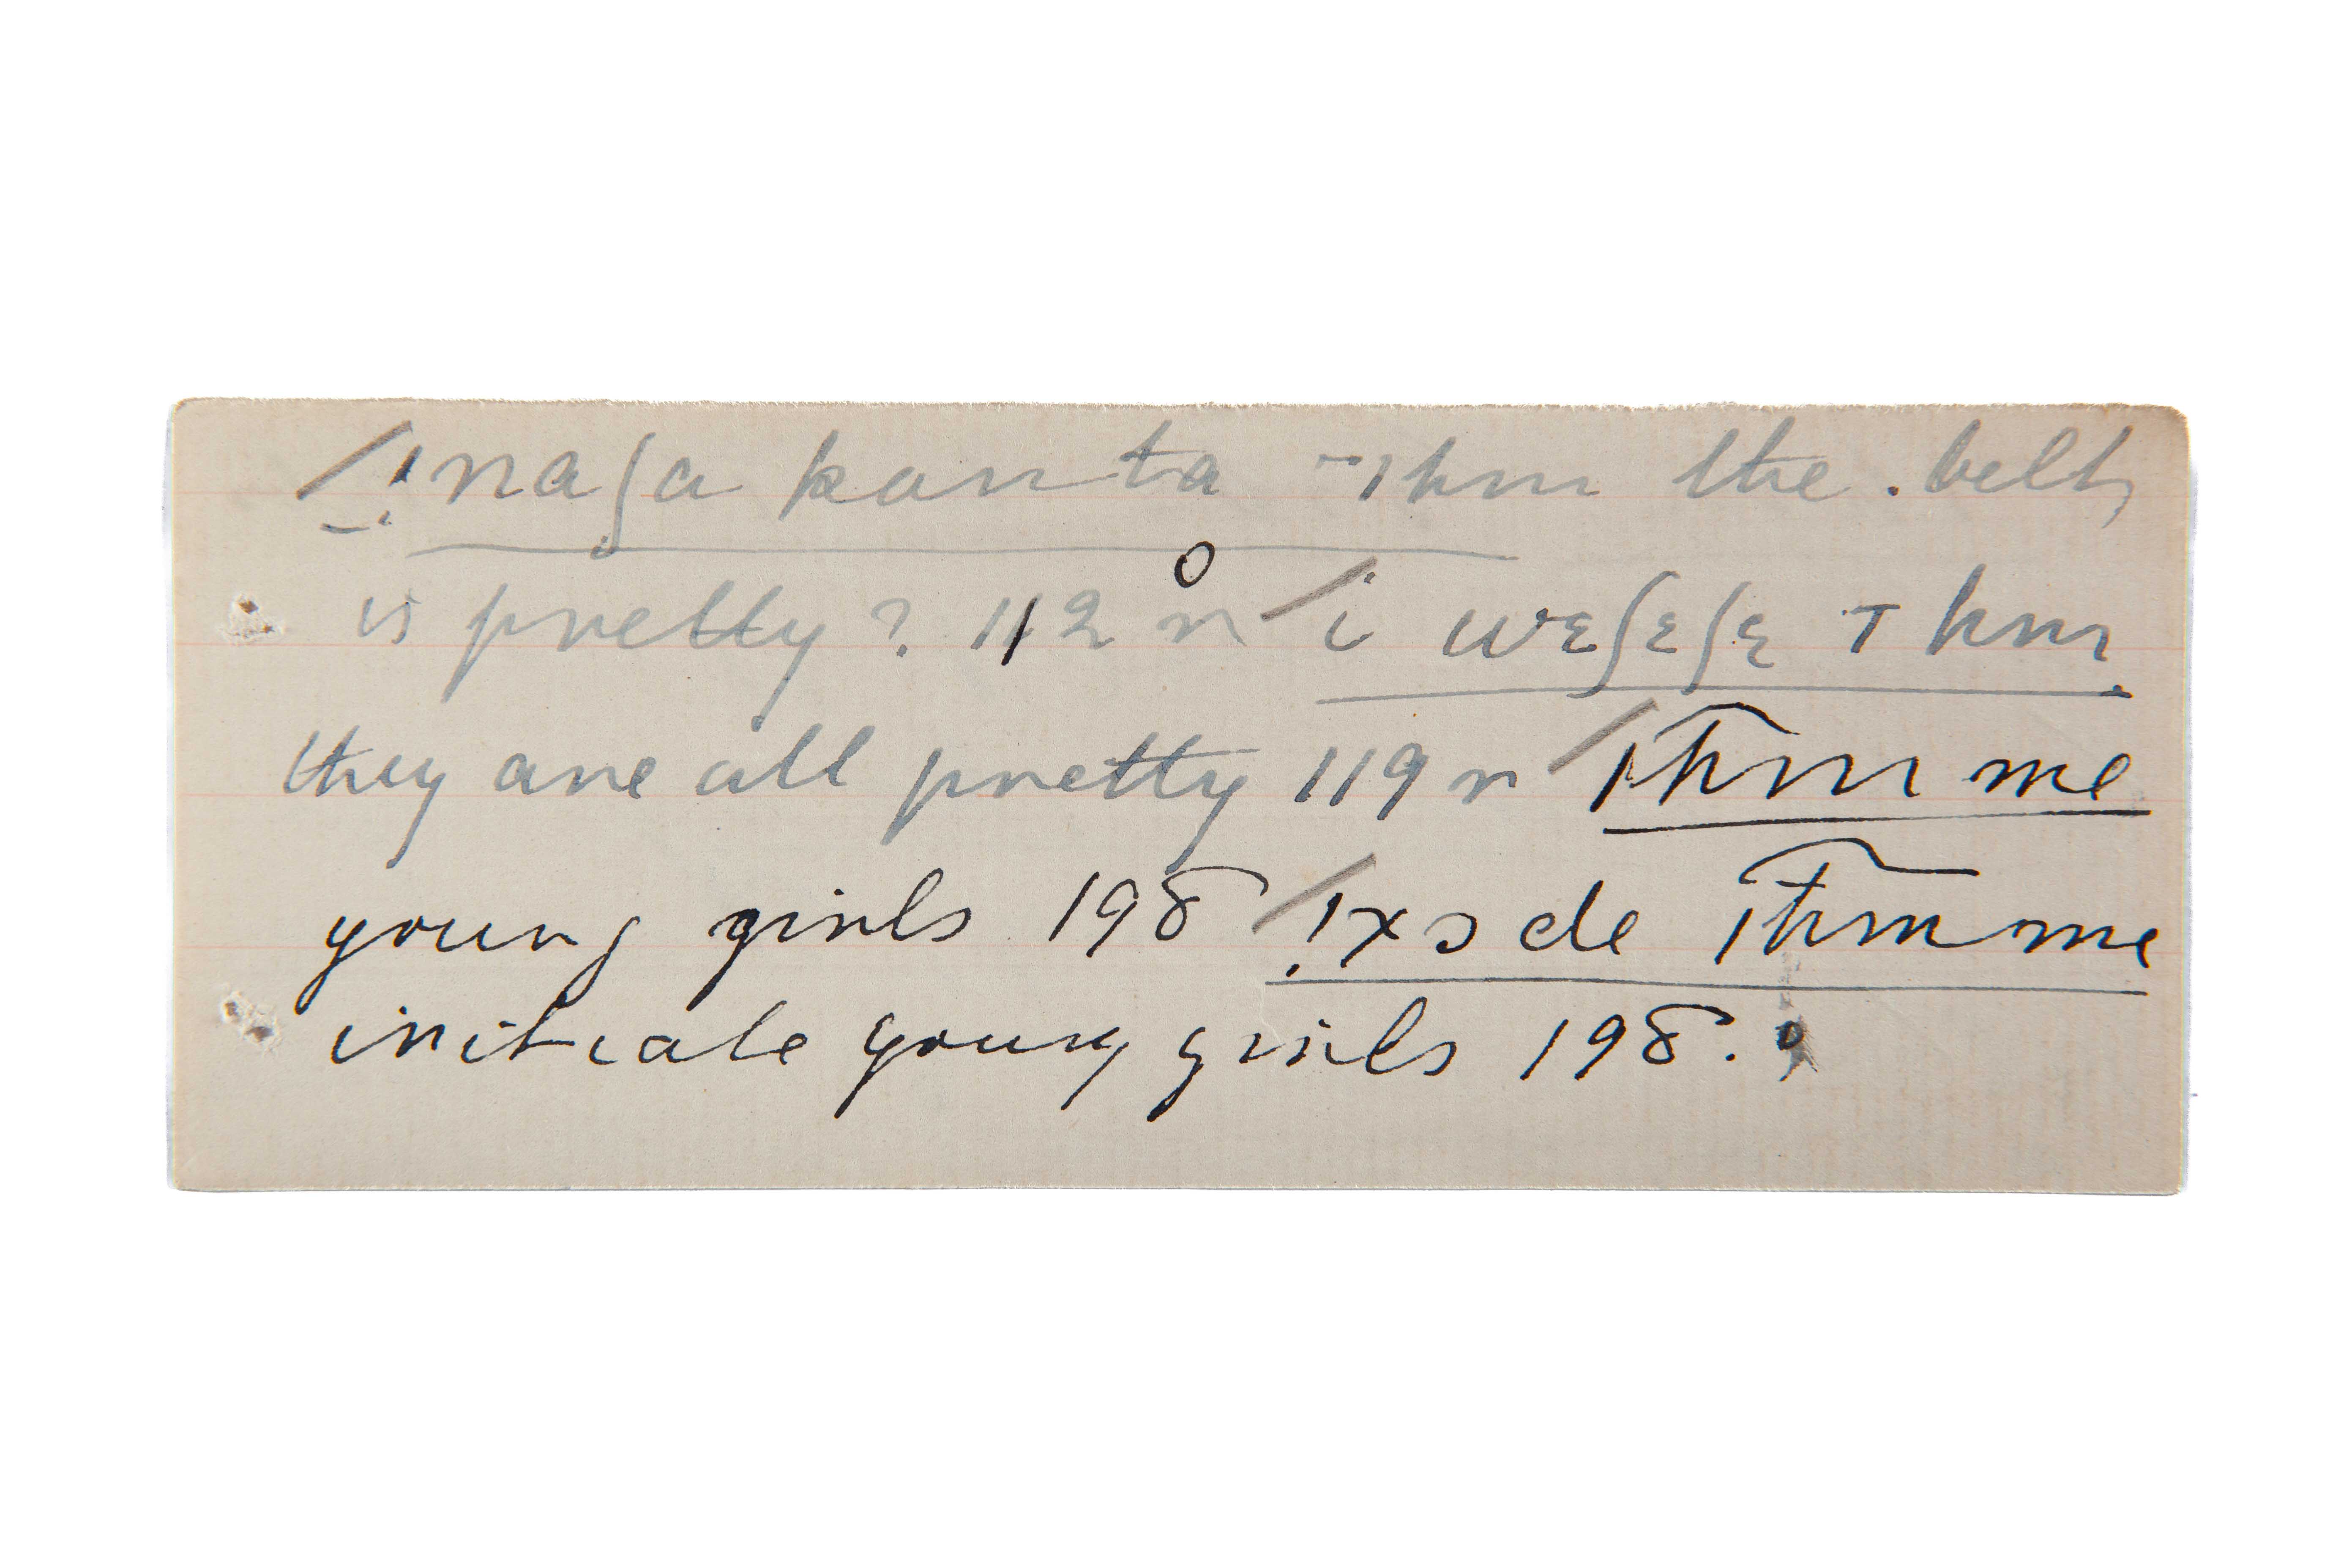 /!naʃa kanta -ıhm the belt,
is pretty? 112 n /i wɛʃɛʃɛ T hm,
they are all pretty 119 n /ıhm me
young girls 198 /!xɔ de ıhm me
initiate young girls 198.